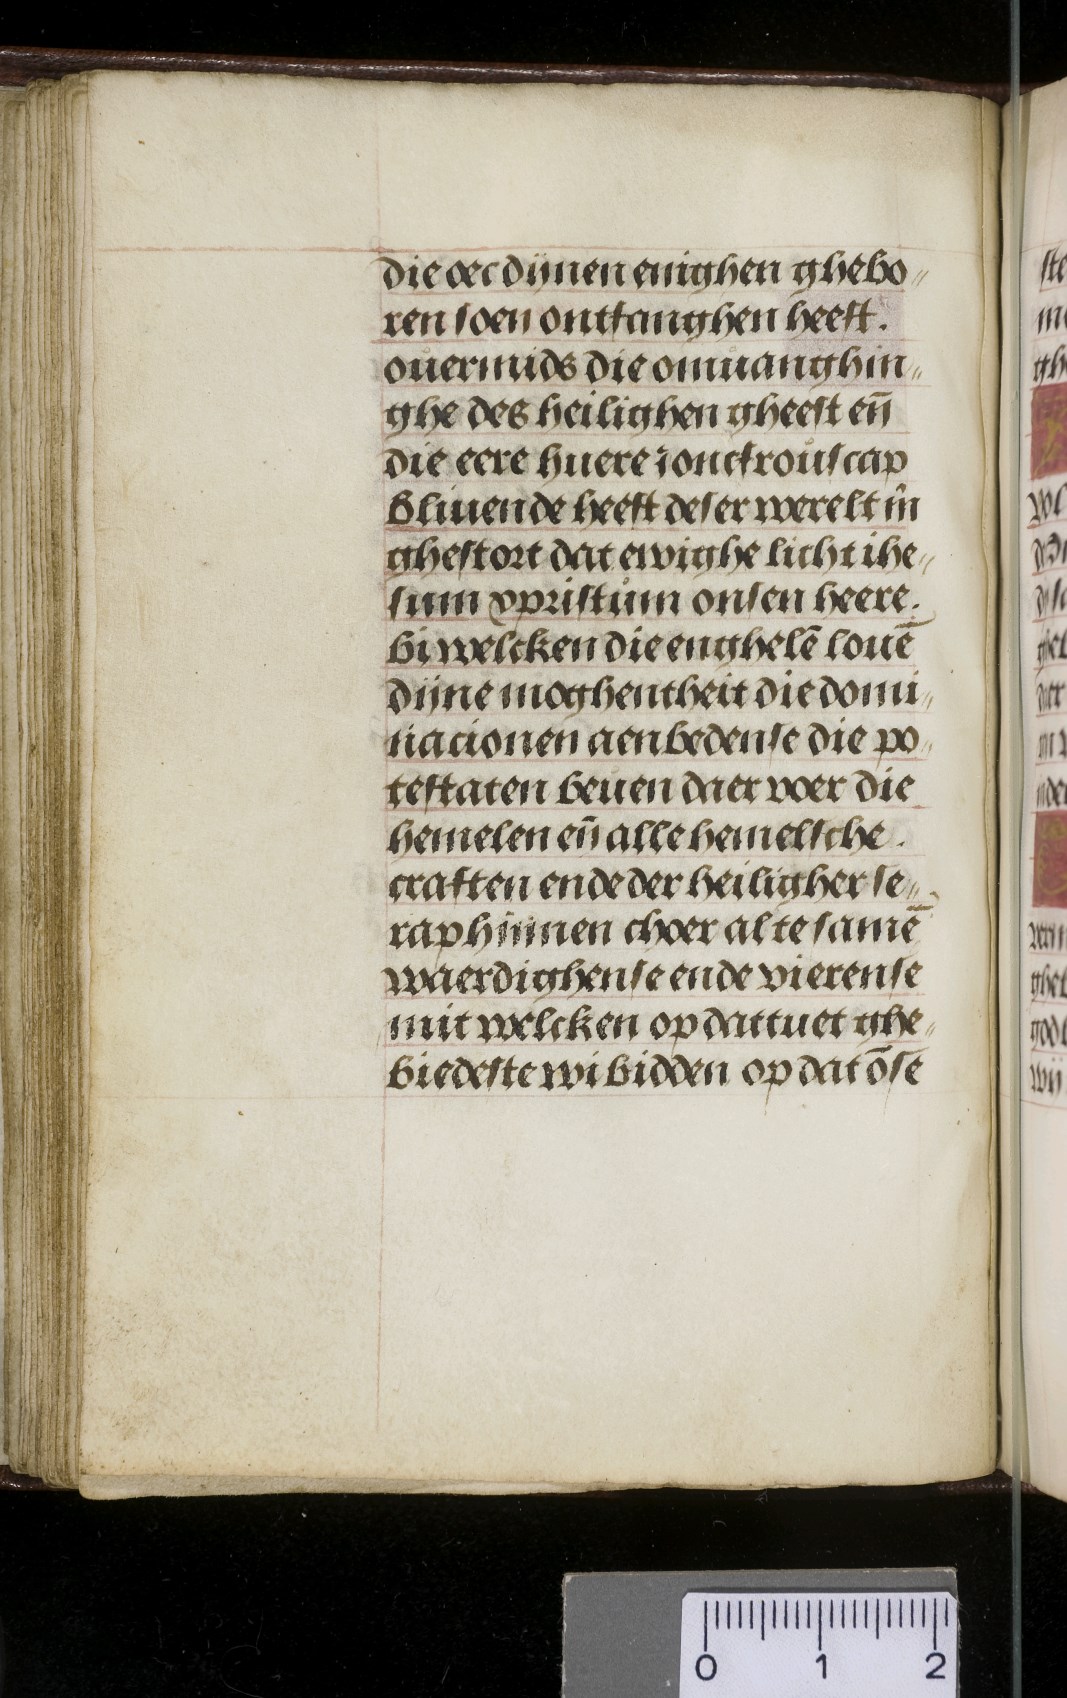 die oec dijnen enighen ghebo„
ren soen ontfanghen heeft.
ouermids die omuanghin„
ghe des heilighen gheest en̄
die eere huere ioncfrouscap
bliuende heeft deser werelt in
ghestort dat ewighe licht ihe„
sum xpristum onsen heere.
bi welcken die enghelē louē
dijne moghentheit die domi„
nacionen aenbedense die po„
testaten beuen daer voer die
hemelen en̄ alle hemelsche.
craften ende der heiligher se„
raphinnen choer al te samē
waerdighense ende vierense
mit welcken op dattuet ghe„
biedeste wi bidden op dat ōse
0 1 2